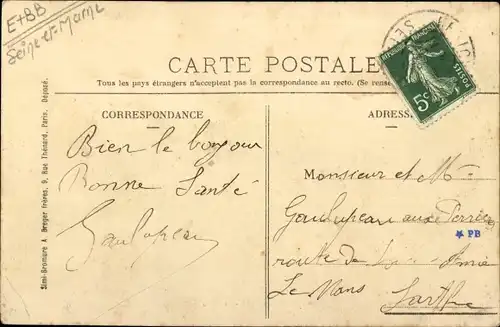 E+BB
Seine-et-Marne
CARTE POSTALE
Tous les pays étrangers n'acceptent pas la correspondance au recto. (Se rense
CORRESPONDANCE
ADRESS
REPUBLIQUE FRANÇAISE
POSTES
5c
Bien le bonjour
Bonne Santé
Gaulupeau
Monsieur et M
Gaulupeau aux Perriers
route de
Le Mans Sarthe
PB
Simi-Bromure A. Breger frères, 9, Rue Thénard, Paris. Déposé.